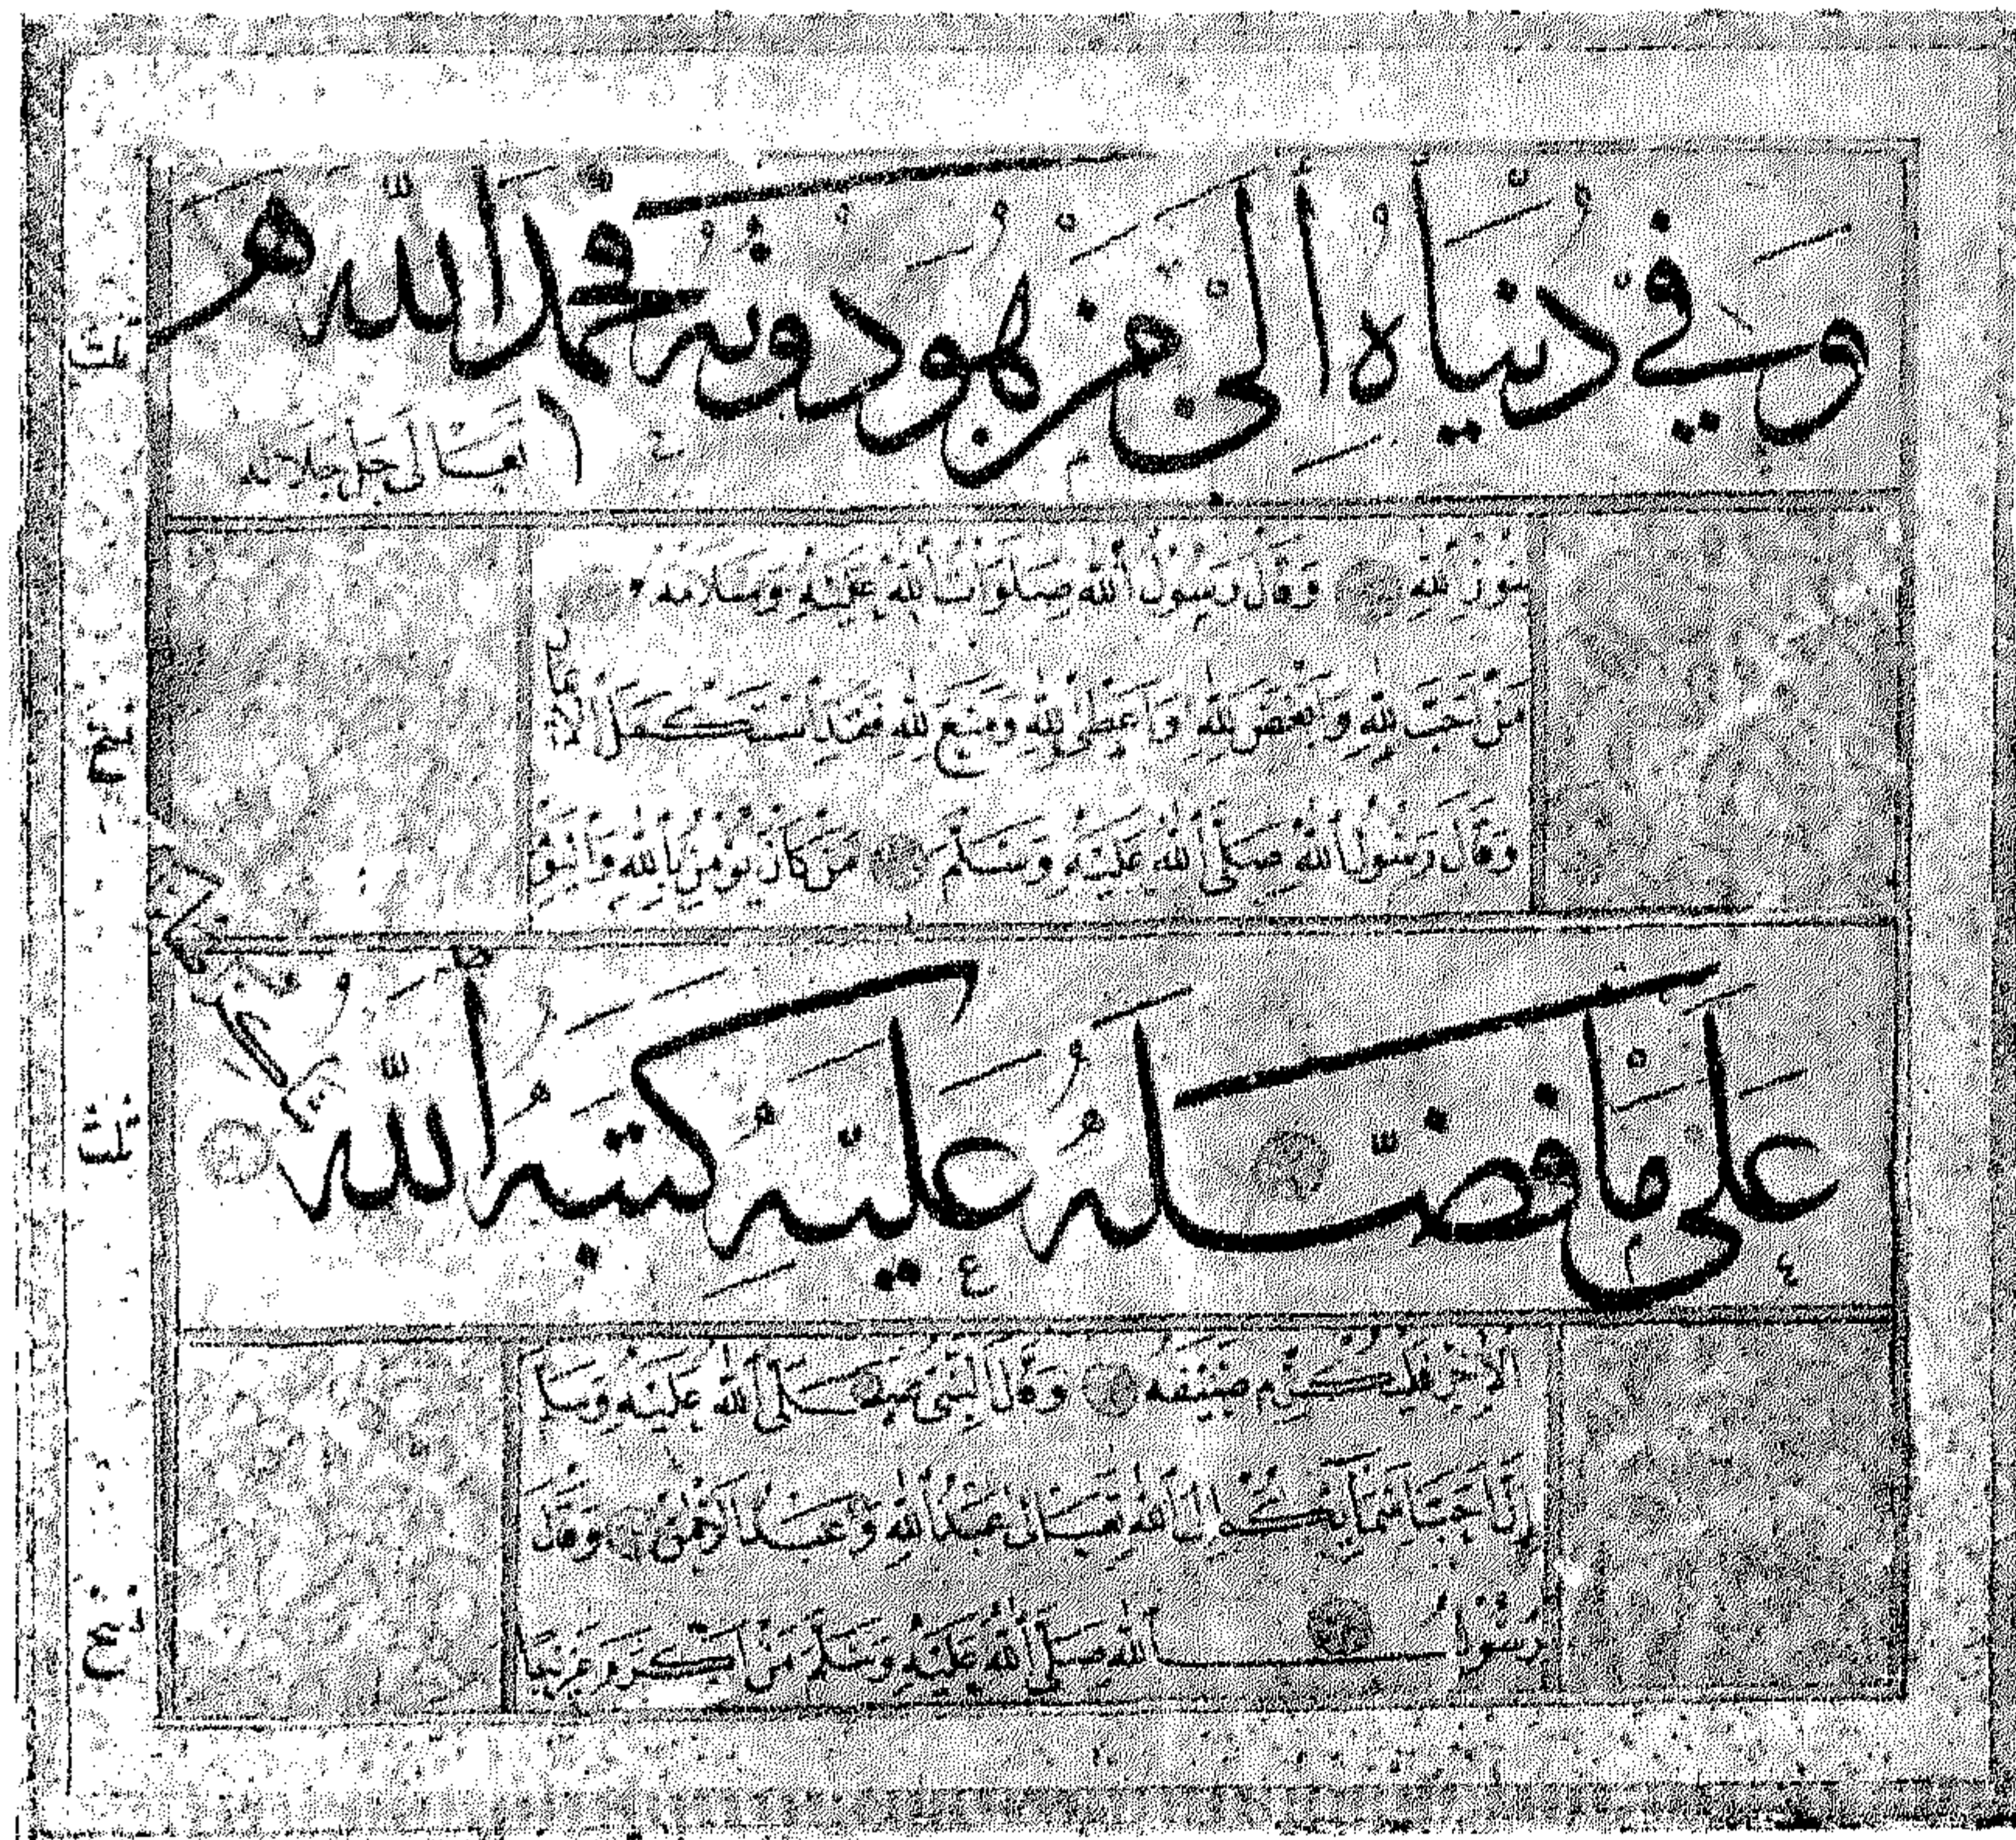 وَفِي دُنْيَاهُ إِلَى مَنْ هُوَ دُونَهُ فَحَمِدَ اللّٰه
تعالى جل جلاله
وَقَالَ رَسُولُ اللهِ صَلَوَاتُ اللهِ عَلَيْهِ وَسَلَامُهُ
مَنْ اَحَبَّ لِلّٰهِ وَاَبْغَضَ لِلّٰهِ وَاَعْطَى لِلّٰهِ وَمَنَعَ لِلّٰهِ فَقَدِ اسْتَكْمَلَ الْاِيمَانَ
وَقَالَ رَسُولُ اللهِ صَلَّى اللهُ عَلَيْهِ وَسَلَّمَ مَنْ كَانَ يُؤْمِنُ بِاللهِ وَالْيَوْمِ
عَلَى مَا فَضَّلَهُ عَلَيْهِ كَتَبَهُ اللّٰهُ
الْاٰخِرِ فَلْيُكْرِمْ ضَيْفَهُ وَقَالَ النَّبِيُّ صَلَّى اللهُ عَلَيْهِ وَسَلَّمَ
اِنَّ اَحَبَّ اَسْمَائِكُمْ اِلَى اللهِ تَعَالَى عَبْدُ اللهِ وَعَبْدُ الرَّحْمٰنِ وَقَالَ
رَسُولُ اللهِ صَلَّى اللهُ عَلَيْهِ وَسَلَّمَ مَنْ اَكْرَمَ غَرِيبًا